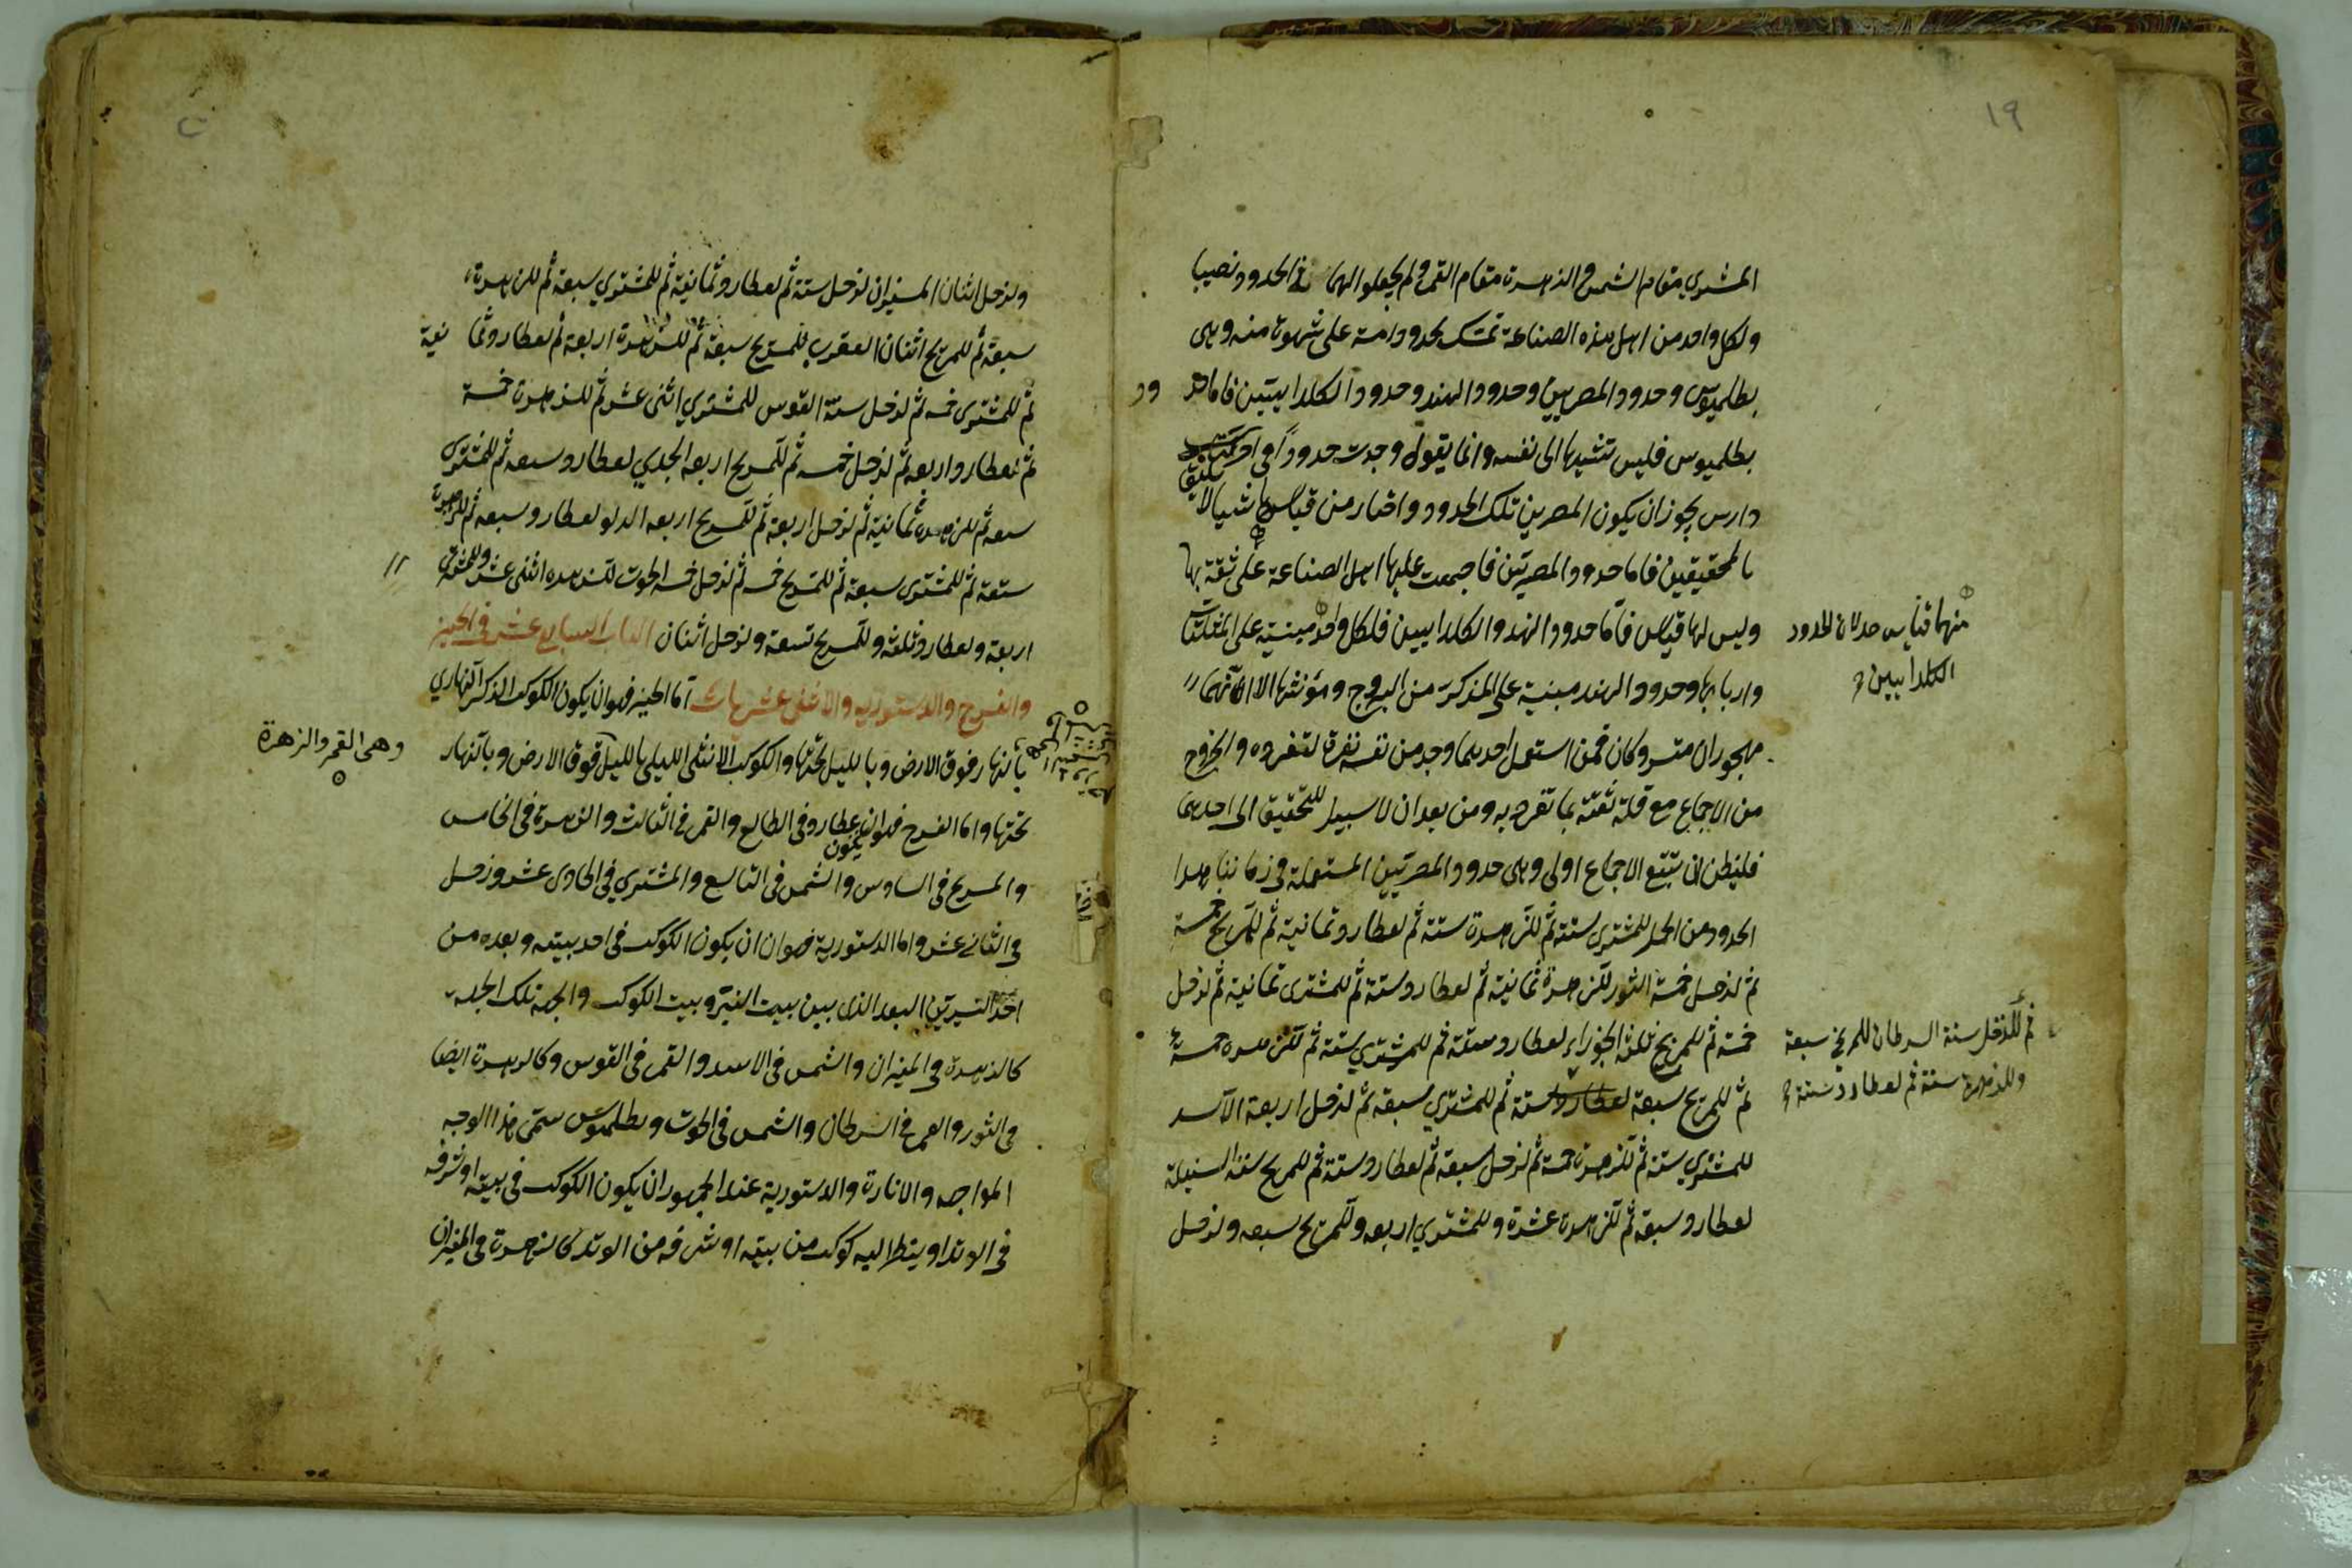 ١٩
المشتري مقام الشمس والزهرة مقام القمر ولم يجعلوا لهما في الحدود نصيبا
ولكل واحد من اهل هذه الصناعة تمسك بحدود امة على شهوة منه وهى
بطلميوس وحدود المصريين وحدود الهند وحدود الكلدانيين فاما حدود
بطلميوس فليس تنشيها الى نفسه وانما يقول وجدت حدودا في
دارس يجوز ان يكون المصريين تلك الحدود واختار من قياسها شيا لا يليق
بالمحققين فاما حدود المصريين فاجمعت عليها اهل الصناعة على ثقة بها
وليس لها قياس فاما حدود الهند والكلدانيين فلكل واحد مبنية على المثلثات
منهما قياس الحدود
الكلدانيين
واربابها وحدود الهند مبنية على المذكرة من البروج ومؤنثها الا انهما
مهجوران متروكان فمن استعمل احديهما وجد من نفسه نفرة لتفرده والخروج
من الاجماع مع قلة ثقته بما تفرد به ومن بعد ان لا سبيل للتحقيق الى احديهما
فليظن ان تتبع الاجماع اولى وهى حدود المصريين المستعملة في زماننا هذا
الحدود من الحمل للمشتري ستة ثم للزهرة ستة ثم لعطارد ثمانية ثم للمريخ خمسة
ثم لزحل خمسة الثور للزهرة ثمانية ثم لعطارد ستة ثم للمشترى ثمانية ثم لزحل
خمسة ثم للمريخ ثلثة الجوزاء لعطارد ستة ثم للمشتري ستة ثم للزهرة خمسة
ثم للزحل ستة السرطان للمريخ سبعة
وللزهرة ستة ثم لعطارد ستة
ثم للمريخ سبعة لعطارد ستة ثم للمشتري سبعة ثم لزحل اربعة الاسد
للمشتري ستة ثم للزهرة خمسة ثم لزحل سبعة ثم لعطارد ستة ثم للمريخ ستة السنبلة
لعطارد سبعة ثم للزهرة عشرة وللمشتري اربعه وللمريخ سبعه ولزحل
ولزحل اثنان الميزان لزحل ستة ثم لعطارد ثمانية ثم للمشتري سبعة ثم للزهرة
سبعة ثم للمريخ اثنان العقرب للمريخ سبعة ثم للزهرة اربعة ثم لعطارد ثمانية
ثم للمشترى خمسه ثم لزحل ستة القوس للمشتري اثنى عشر ثم للزهرة خمسة
ثم لعطارد اربعه ثم لزحل خمسه ثم للمريخ اربعه الجدي لعطارد سبعه ثم للمشترى
سبعه ثم للزهرة ثمانية ثم لزحل اربعة ثم للمريخ اربعه الدلو لعطارد سبعه ثم للزهرة
ستة ثم للمشترى سبعة ثم للمريخ خمسه ثم لزحل خمسه الحوت للزهره اثنى عشر وللمشترى
اربعة ولعطارد ثلثه وللمريخ تسعة ولزحل اثنان الباب السابع عشر في الحيز
والفرح والدستوريه والاثنى عشريات اما الحيز فهو ان يكون الكوكب الذكر النهاري
بالنهار فوق الارض وبالليل تحتها والكوكب الانثى الليلى بالليل فوق الارض وبالنهار
وهى القمر والزهرة
تحتها واما الفرح فهو ان يكون عطارد في الطالع والقمر في الثالث والزهرة في الخامس
والمريخ في السادس والشمس في التاسع والمشتري في الحادى عشر وزحل
فى الثانى عشر واما الدستورية فهو ان يكون الكوكب في احد بيتيه وبعده من
احد النيرين البعد الذى بين بيت النير وبيت الكوكب والجهة تلك الجهة
كالزهرة في الميزان والشمس في الاسد والقمر في القوس وكالزهرة ايضا
في الثور والقمر في السرطان والشمس في الحوت وبطلميوس سمى هذا الوجه
المواجهه والانارة والدستورية عند الجمهور ان يكون الكوكب في بيته او شرفه
في الوتد او ينظر اليه كوكب من بيته او شرفه من الوتد كالزهرة في الميزان